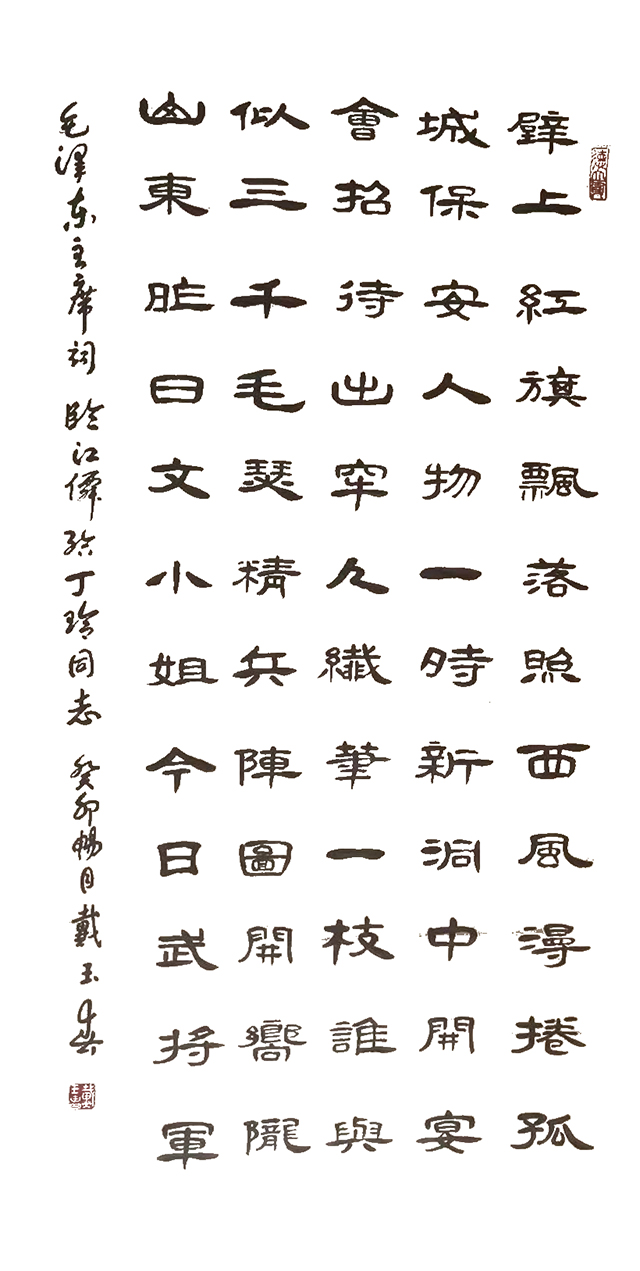 壁上紅旗飄落照西風漫捲孤
城保安人物一時新洞中開宴
會招待出牢人纖筆一枝誰與
似三千毛瑟精兵陣圖開嚮隴
山東昨日文小姐今日武將軍
毛澤东主席詞 臨江僊 給丁玲同志 癸卯暢月戴玉